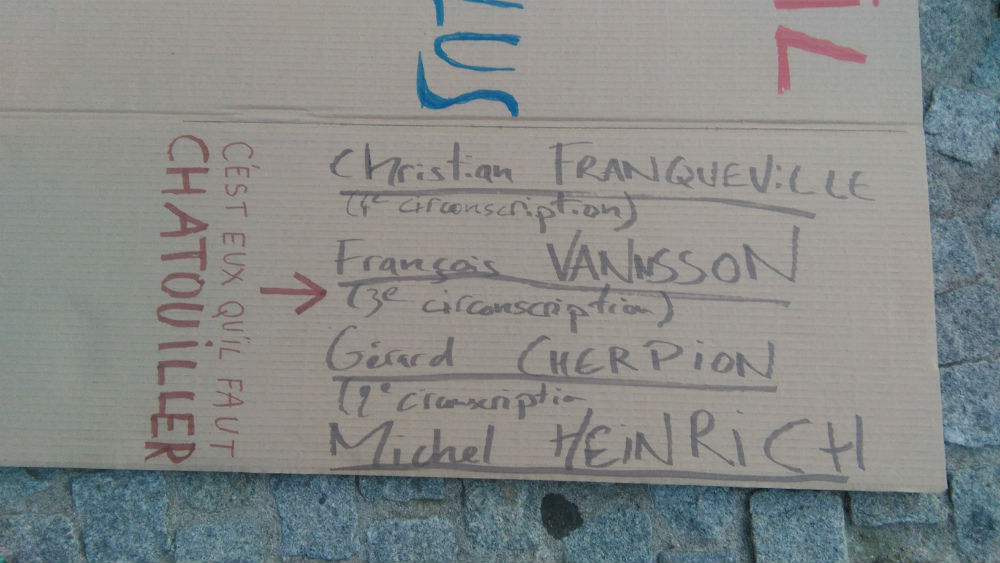 LUS
IL
C'EST EUX QU'IL FAUT
CHATOUILLER
→
Christian FRANQUEViLLE
(4e circonscription)
François VANNSSON
(3e circonscription)
Gérard CHERPiON
(2e cironscription
Michel HEiNRiCH